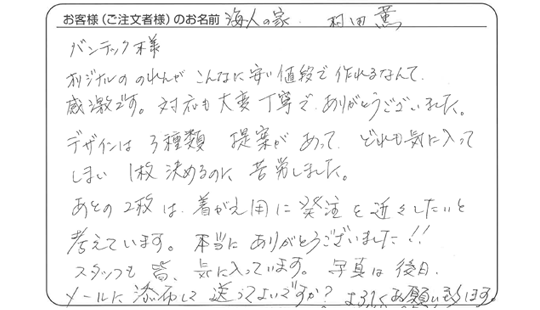 お客様（ご注文者様）のお名前 海人の家. 村田 薫
バンテック様
オリジナルの のれんが こんなに安い値段で 作れるなんて、
感激です。対応も大変丁寧で、ありがとうございました。
デザインは 3種類 提案が あって、どれも気に入って
しまい 1枚 決めるのに 苦労しました。
あとの 2枚は、着がえ用に 発注を 近々したいと
考えています。本当に ありがとうございました!!
スタッフも 皆、気に入っています。写真は 後日、
メールに 添布して 送ってよいですか? よろしくお願い致します。